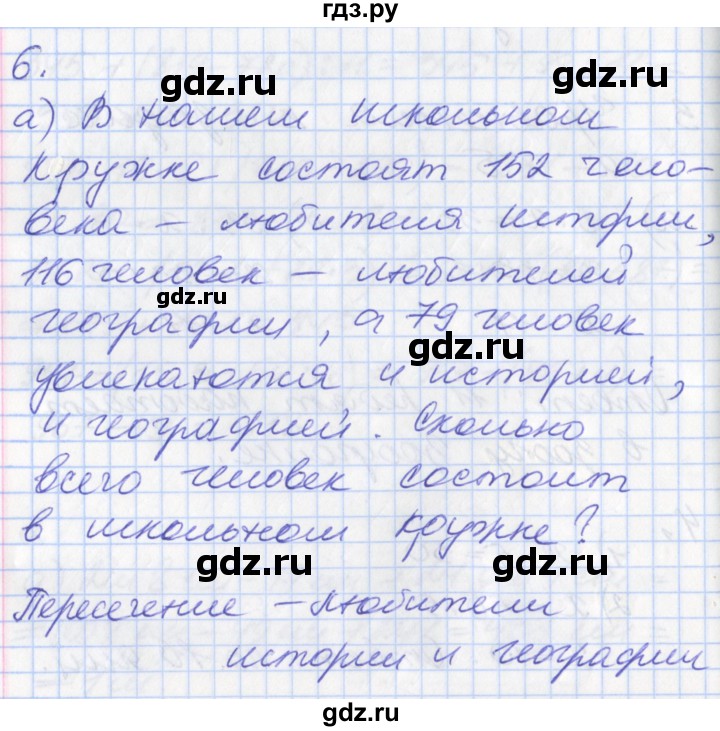 гдз.ру
6.
gdz.ru
gdz.ru
а) В нашем школьном
кружке состоят 152 чело-
века – любителя истории,
116 человек – любителей
gdz.ru
географии, а 79 человек
gdz.ru
увлекаются и историей,
и географией. Сколько
всего человек состоит
gdz.ru
в школьном кружке?
gdz.ru
gdz.ru
Пересечение – любители
истории и географии
gdz.ru